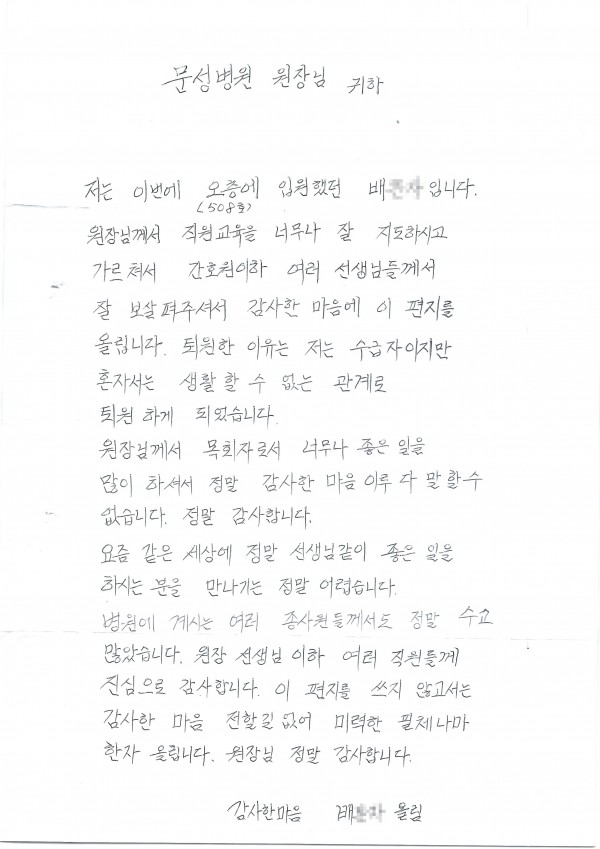 문성병원 원장님 귀하
저는 이번에 오층에 입원했던 배 입니다.
(508호)
원장님께서 직원교육을 너무나 잘 지도하시고
가르쳐서 간호원이하 여러 선생님들께서
잘 보살펴주셔서 감사한 마음에 이 편지를
올립니다. 퇴원한 이유는 저는 수급자이지만
혼자서는 생활 할 수 없는 관계로
퇴원 하게 되었습니다.
원장님께서 목회자로서 너무나 좋은 일을
많이 하셔서 정말 감사한 마음 이루 다 말 할 수
없습니다. 정말 감사합니다.
요즘 같은 세상에 정말 선생님같이 좋은 일을
하시는 분을 만나기는 정말 어렵습니다.
병원에 계시는 여러 종사원들께서도 정말 수고
많았습니다. 원장 선생님 이하 여러 직원들께
진심으로 감사합니다. 이 편지를 쓰지 않고서는
감사한 마음 전할길 없어 미력한 필체나마
한자 올립니다. 원장님 정말 감사합니다.
감사한마음 배 올림